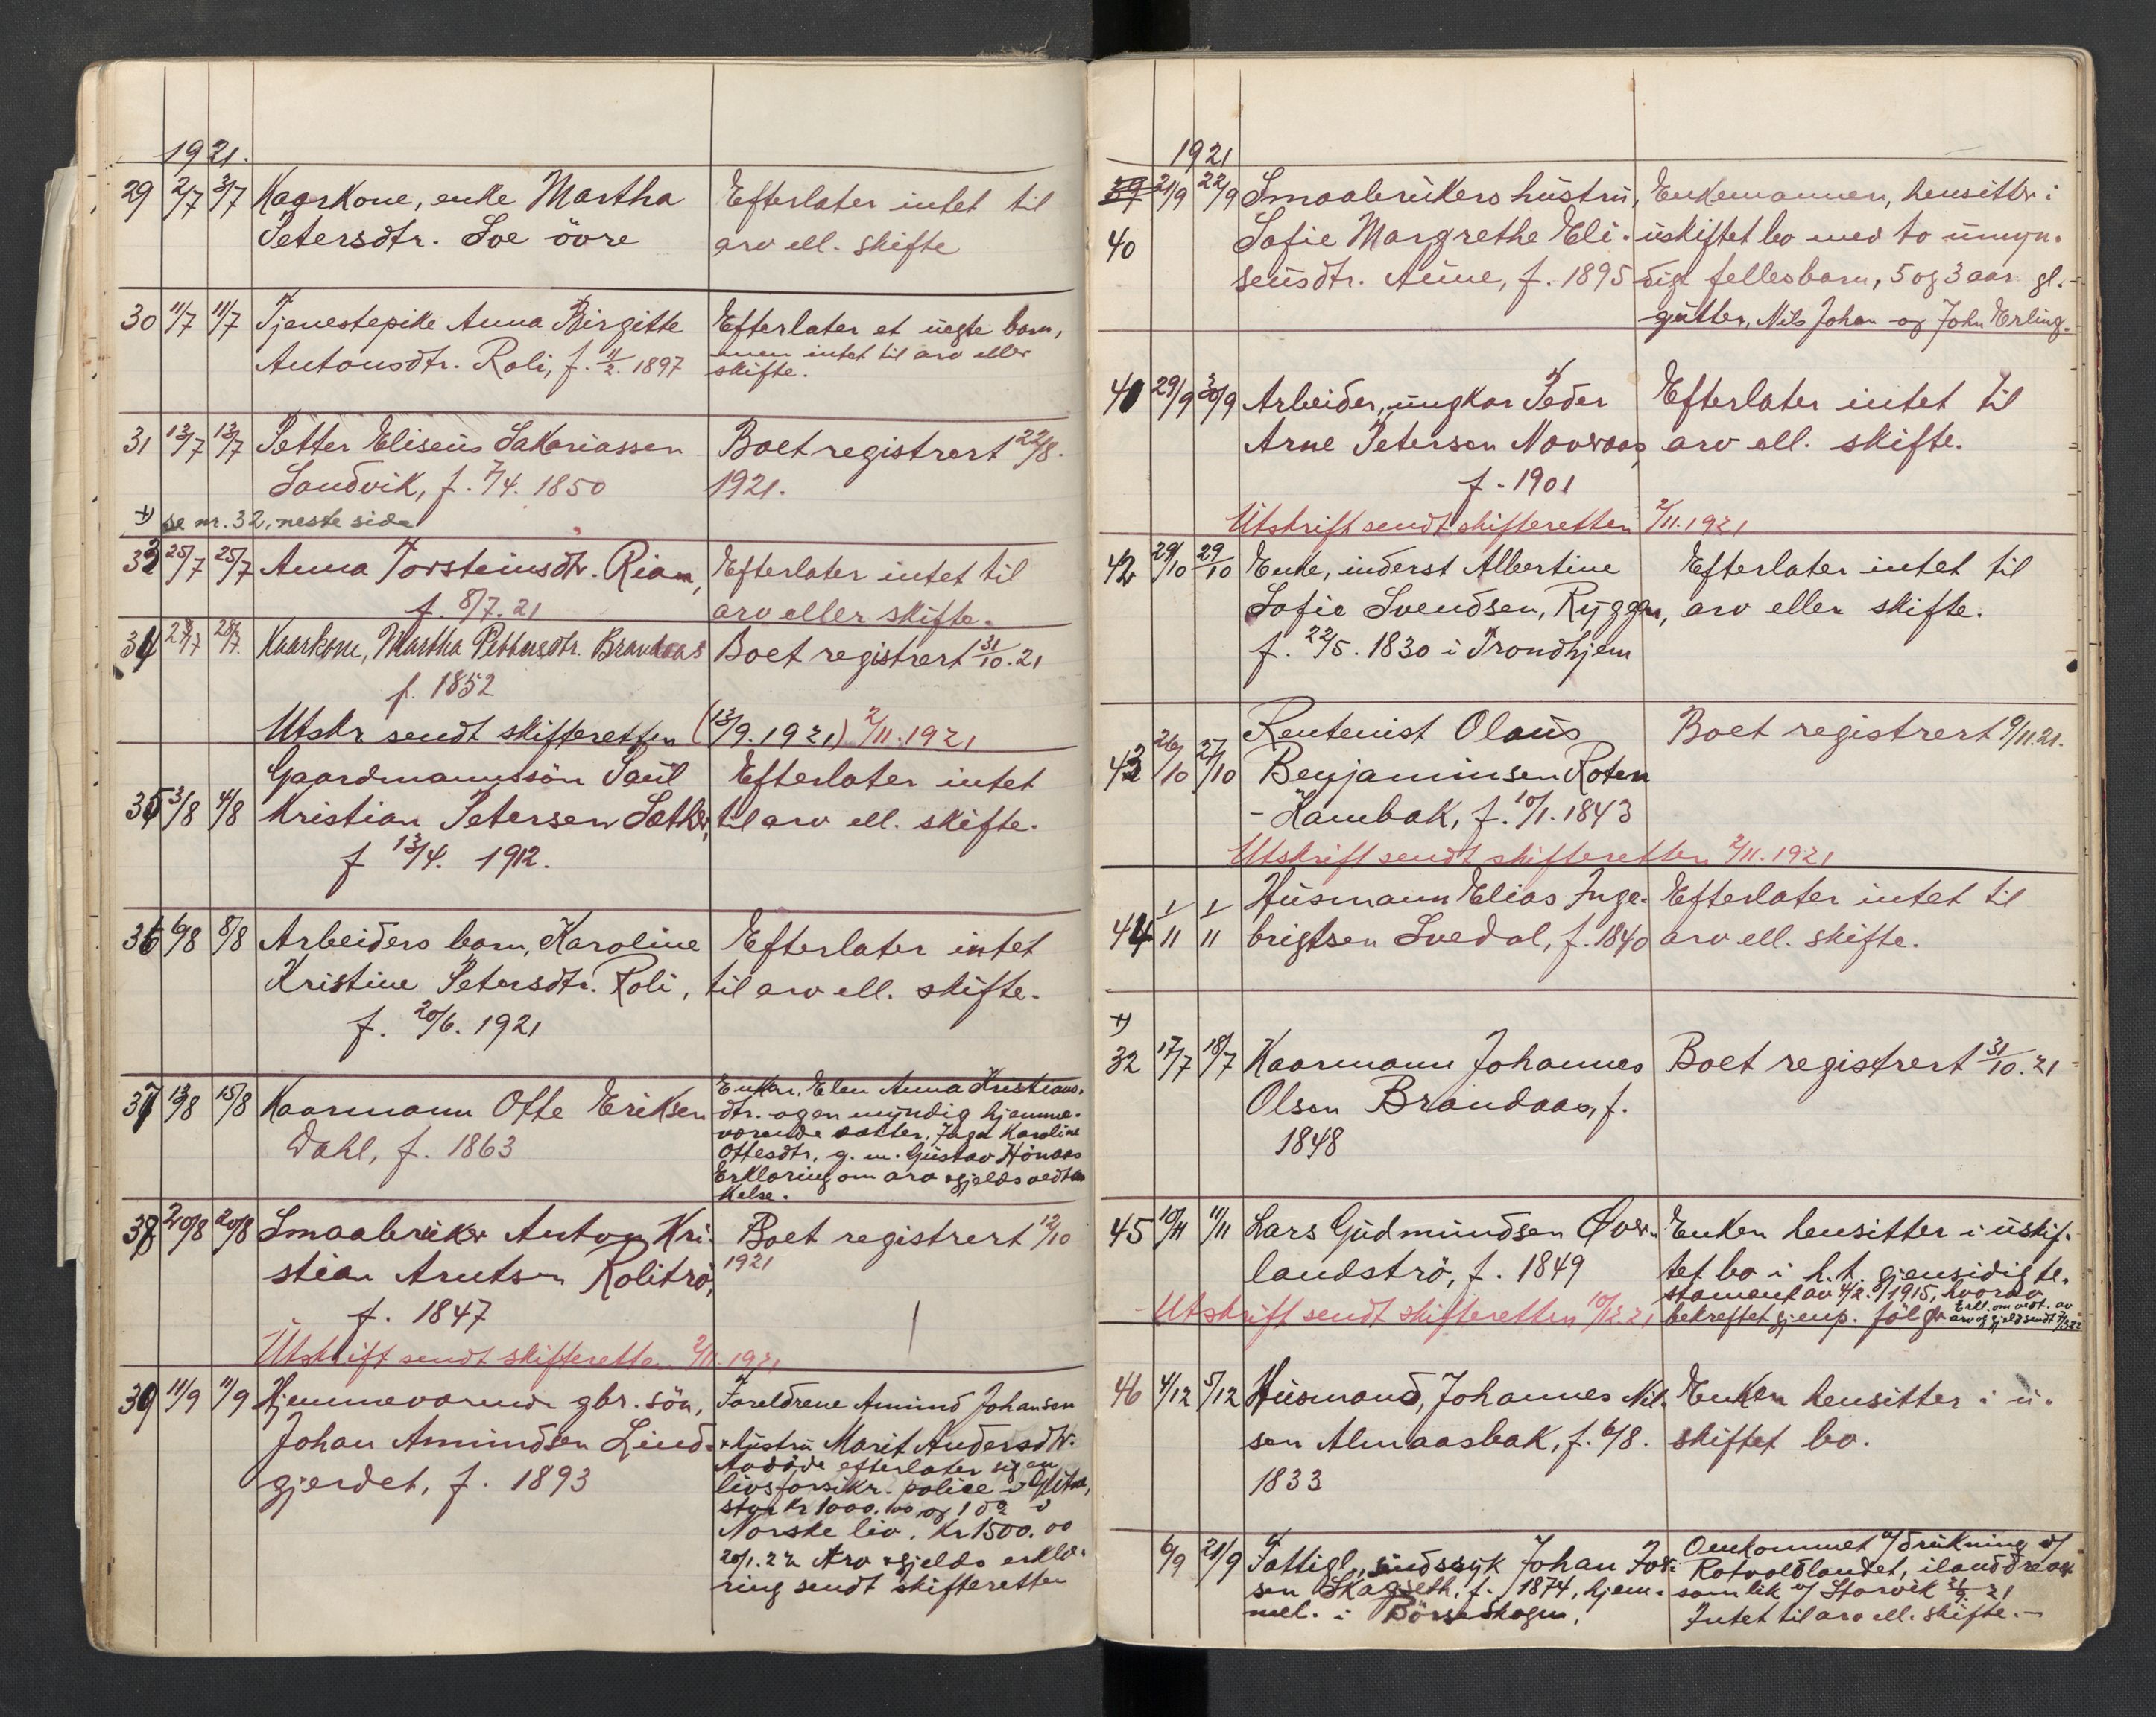 1921.
29 2/7 3/7 Kaarkone, enke Martha Efterlater intet til
Petersdtr. Loe övre arv ell. skifte
30 11/7 11/7 Tjenestepike Anna Birgitte Efterlater et uegte barn,
Antonsdtr. Roli, f. 11/2. 1897 men intet til arv eller
skifte.
31 13/7 13/7 Petter Eliseus Sakariassen Boet registrert 22/8.
Sandvik, f. 7/4. 1850 1921.
+) se nr. 32, neste side
33 25/7 25/7 Anna Torsteinsdtr. Rian, Efterlater intet til
f. 8/7. 21 arv eller skifte.
34 28/7 28/7. Kaarkone, Martha Pettersdtr. Brandaas Boet registrert 31/10. 21
f. 1852
Utskr sendt skifteretten (13/9. 1921) 2/11. 1921
Gaardmannssön Paul Efterlater intet
35 3/8 4/8 Kristian Petersen Sæther, til arv ell. skifte.
f 13/4. 1912.
36 6/8 8/8 Arbeiders barn, Karoline Efterlater intet
Kristine Petersdtr. Roli, til arv ell. skifte.
f. 20/6. 1921
37 13/8 15/8 Kaarmann Otte Eriksen Enken, Elen Anna Kristians-
Dahl, f. 1863 dtr. og en myndig hjemme-
værende datter, Inga Karoline
Ottesdtr, g. m. Gustav Hönaas
Erklæring om arv & gjelds vedta
kelse.
38 20/8 20/8 Smaabruker Anton Kri- Boet registrert 12/10
stian Arntsen Rolitrö, 1921
f. 1847
Utskrift sendt skifteretten 2/11. 1921
39 11/9 11/9 Hjemmeværende gbr. sön, Foreldrene Amund Johansen
Johan Amundsen Lind- & hustru Marit Andersdtr.
gjerdet, f. 1893 Avdöde efterlater sig en
livsforsikr. police i Glitne,
stor kr 1000.00 og 1 do i
Norske liv. Kr 1500.00
20/1. 22 Arv & gjelds erklæ-
ring sendt skifteretten
1921
39 21/9 22/9 Smaabrukers hustru, Enkemannen, hensitter i
40 Sofie Margrethe Eli- uskiftet bo med to umyn-
seusdtr. Aune, f. 1895 dige fellesbarn, 5 og 3 aar gl.
gutter, Nils Johan og John Erling.
41 29/9 30/9 Arbeider, ungkar Peder Efterlater intet til
Arne Petersen Novraas, arv ell. skifte.
f. 1901
Utskrift sendt skifteretten 2/11. 1921
42 29/10 29/10 Enke, inderst Albertine Efterlater intet til
Sofie Svendsen, Ryggen, arv eller skifte.
f. 22/5. 1830 i Trondhjem
Rentenist Olaus Boet registrert 9/11. 21.
43 26/10 27/10 Benjaminsen Roten
- Hambak, f. 10/1. 1843
Utskrift sendt skifteretten 2/11. 1921
Husmann Elias Inge- Efterlater intet til
44 1/11 1/11 brigtsen Svedal, f. 1840 arv ell. skifte.
+)
32 17/7 18/7 Kaarmann Johannes Boet registrert 31/10. 21
Olsen Brandaas, f.
1848
45 10/11 11/11 Lars Gudmundsen Over- Enken hensitter i uskif-
landströ, f. 1849 tet bo i h.t. gjensidig te-
stament av 4/2. 1915, hvorav
Utskrift sendt skifteretten 10/12. 21 bekreftet gjenp. fölger Erkl. om vedt. av
arv og gjeld sendt 7/3 22
46 4/12 5/12 Husmand, Johannes Nil- Enken hensitter i u-
sen Almaasbak, f. 6/8. skiftet bo.
1833
6/9 21/9 Fattigl., sindssyk Johan Omkommet v/ drukning v/
sen Skagseth, f. 1874, hjem- Rotvoldlandet, iland
mel. i Börseskogen, som lik v/ Storvik 21
Intet til arv ell. skifte. -